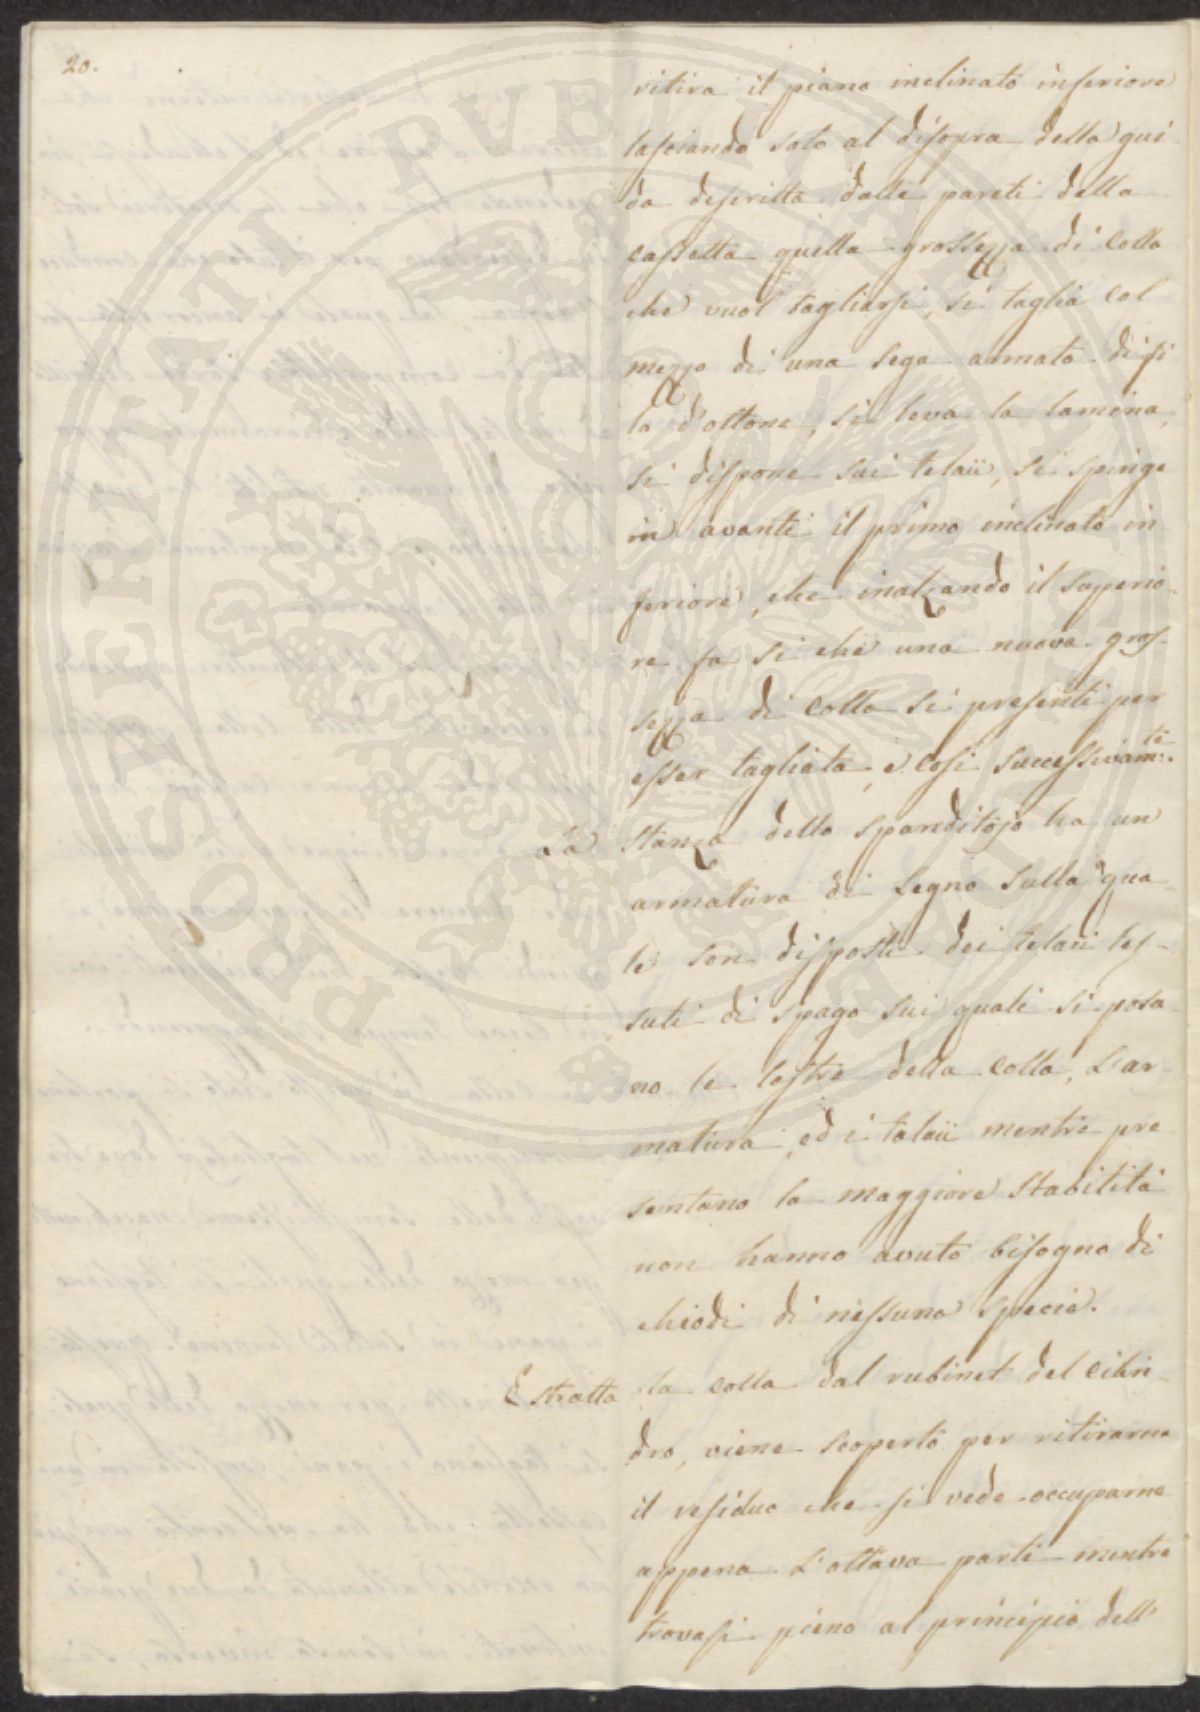 20.
ritira il piano inclinato inferiore
lasciando solo al disopra della gui
da descritta dalle pareti della
cassetta quella grossezza di colla
che vuol tagliarsi, si taglia col
mezzo di una sega armata di fi
lo d'ottone, si leva la lamina,
si dispone sui telaii, si spinge
in avanti il primo inclinato in
feriore, che inalzando il superio-
re fa si che una nuova gros-
sezza di colla si presenti per
esser tagliata, e così successivam:te
La stanza dello spanditojo ha un
armatura di legno sulla qua-
le son disposti dei telaii tes-
suti di spago sui quali si posa-
no le lastre della colla, L'ar-
matura, ed i telaii mentre pre
sentano la maggiore stabilità
non hanno avuto bisogno di
chiodi di nessuna specie.
Estratta la colla dal rubinet del cilin-
dro, viene scoperto per ritirarne
il residuo che si vede occuparne
appena L'ottava parti mentre
trovasi pieno al principio dell'
PROSPERITATI PVBLICAE